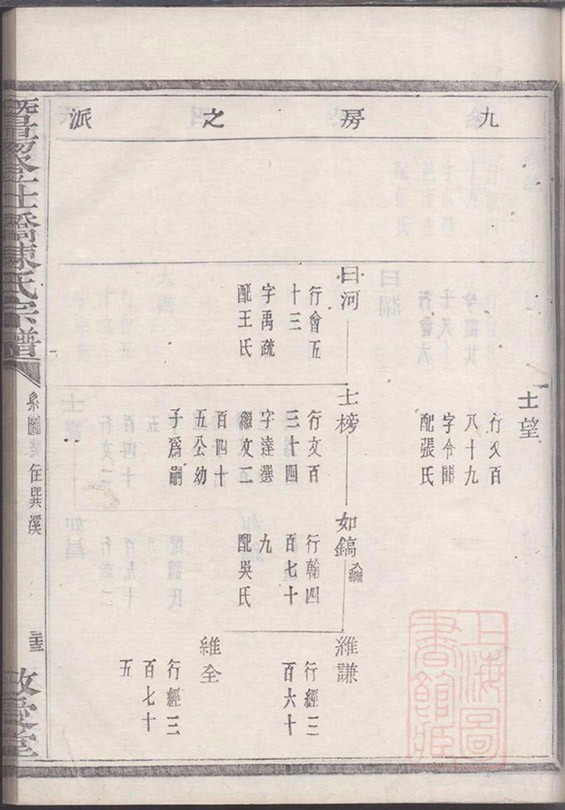 九房之派
士望
行文百
八十九
字令聞
配張氏
曰河
行會五
十三
字禹疏
配王氏
士榜
行文百
三十四
字達選
繼文二
百四十
五公幼
子爲嗣
如鎬
繼
行翰四
百七十
九
配吳氏
維謙
行經三
百六十
維全
行經三
百七十
五
橋陳氏宗譜
系圖
住巽溪
三十三
敬愛堂
上海圖
書館藏